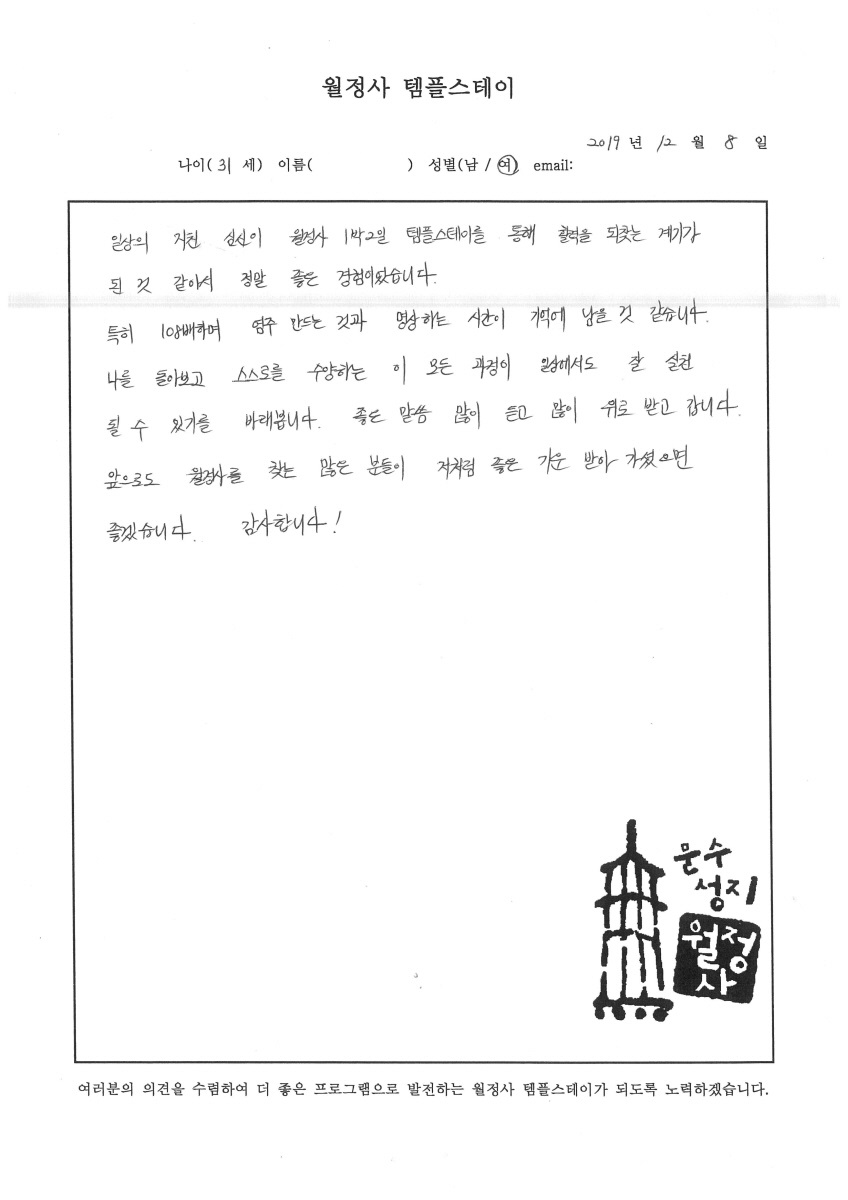 월정사 템플스테이
2019 년 12 월 8 일
나이( 31 세) 이름( ) 성별(남 / 여) email:
일상의 지친 심신이 월정사 1박2일 템플스테이를 통해 활력을 되찾는 계기가
된 것 같아서 정말 좋은 경험이었습니다.
특히 108배하며 염주 만드는 것과 명상하는 시간이 기억에 남을 것 같습니다.
나를 돌아보고 스스로를 수양하는 이 모든 과정이 일상에서도 잘 실천
될 수 있기를 바래봅니다. 좋은 말씀 많이 듣고 많이 위로 받고 갑니다.
앞으로도 월정사를 찾는 많은 분들이 저처럼 좋은 기운 받아 가셨으면
좋겠습니다. 감사합니다!
문수
성지
월정
사
여러분의 의견을 수렴하여 더 좋은 프로그램으로 발전하는 월정사 템플스테이가 되도록 노력하겠습니다.